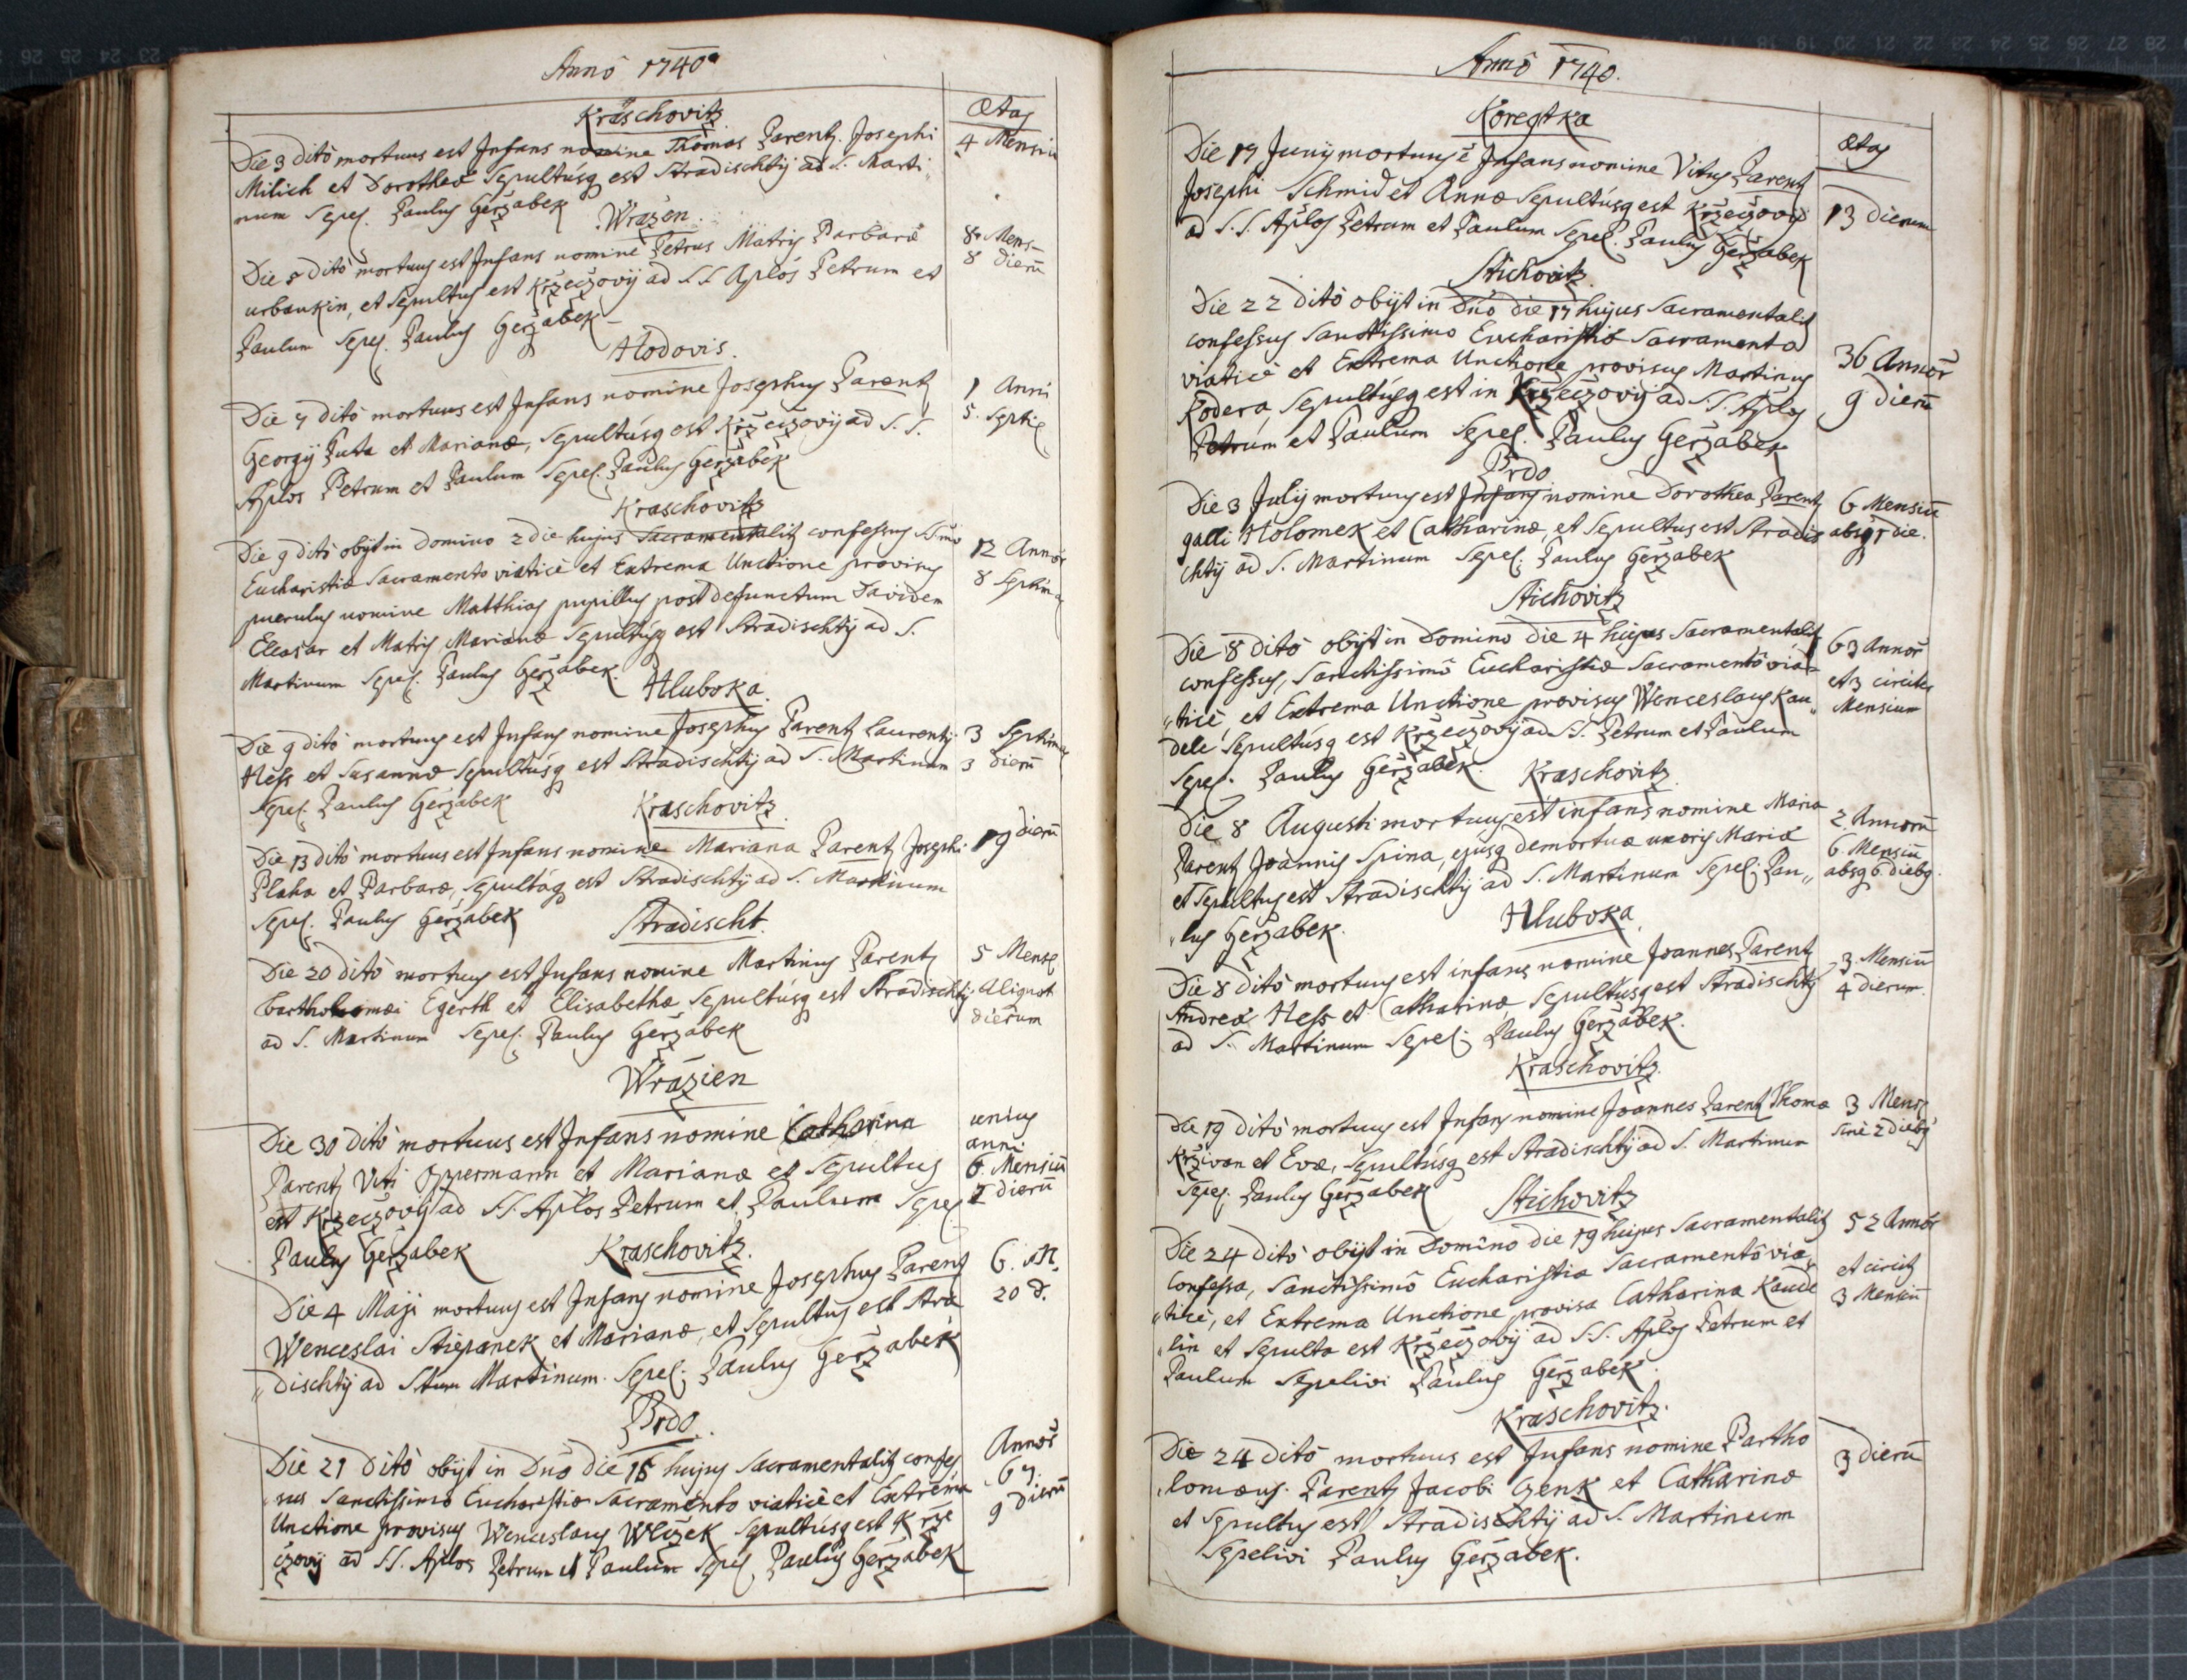 Anno 1740
Ætas
Kraschovitz
Die 3 dito mortuus est Infans nomine Thomas Parent. Josephi
4 Mensiu
Milich et Dorotheæ Sepultusq est Stradischtij ad S. Marti
num Sepel. Paulus Geržabek
Wrażen
Die 5 dito mortuus est Infans nomine Petrus Matris Barbaræ
8 Mens
8 dierū
urbankin, et Sepultus est Kržeczovij ad S S Aplos Petrum et
Paulum Sepel. Paulus Geržabek
Hodovis.
Die 7 dito mortuus est Infans nomine Josephus Parent
1 Anni
5. Septi
Georgij Puta et Marianæ, Sepultusq est Kržeczovij ad S. S.
Aplos Petrum et Paulum Sepel. Paulus Geržabek
Kraschovitz
Die 9 dito obijt in Domino 2 die hujus Sacramentalit confessus SSmo
12 Annor
Eucharistiæ Sacramento viatice et Extrema Unctione provisus
8 Septim
puerulus nomine Matthias pupillus post defunctum Davidem
Eleasar et Matris Marianæ Sepultusq est Stradischtij ad S.
Martinum Sepel. Paulus Geržabek.
Hluboka.
Die 9 dito mortuus est Infans nomine Josephus Parent Laurentij
3 Septim
Hess et Susannæ Sepultusq est Stradischtij ad S. Martinum
3 dierū
Sepel. Paulus Geržabek
Kraschovitz.
Die 13 dito mortuus est Infans nomine Mariana Parent Josephi
19 dierū
Plaha et Barbaræ, Sepultaq est Stradischtij ad S. Martinum
Sepel. Paulus Geržabek
Stradischt.
Die 20 dito mortuus est Infans nomine Martinus Parent
5 Mens
Bartholomæi Egerth et Elisabethæ Sepultusq est Stradischtij
Aliquot
dierum
ad S. Martinum Sepel. Paulus Geržabek
Wrażien
Die 30 dito mortuus est Infans nomine Catharina
unius
anni
Parent Viti Oppermann et Marianæ et Sepultus
6. Mensiū
est Kržeczovij ad S.S. Aplos Petrum et Paulum Sepel
dierū
Paulus Geržabek
Kraschovitz.
Die 4 Maji mortuus est Infans nomine Josephus Parent
6. M.
Wenceslai Stiepanek et Marianæ, et Sepultus est Stra
20 d.
„dischtij ad Stum Martinum. Sepel. Paulus Geržabek
Brdo.
Die 21 dito obijt in Dno die 15 hujus Sacramentalit confes
Annor
67.
sus Sanctissimo Eucharistiæ Sacramento viatice et Extrema
9 dierū
Unctione provisus Wenceslaus Wlczek Sepultusq est Krže
czovij ad S.S. Aplos Petrum et Paulum Sepel. Paulus Geržabek
Anno 1740.
Koregtka
ætas
Die 19 Junij mortuus ē Infans nomine Vitus Parent
Josephi Schmid et Annæ Sepultusq est Kržeczovij
13 dierum
ad S.S. Aplos Petrum et Paulum Sepel. Paulus Geržabek
Stichovitz.
Die 22 dito obijt in Dno die 17 hujus Sacramentalit
confessus Sanctissimo Eucharistiæ Sacramento
viatice et Extrema Unctione provisus Martinus
36 Annor
Kodera, Sepultusq est in Kržeczovij ad S.S. Aplos
9 dierū
Petrum et Paulum Sepel. Paulus Geržabek
Brdo
Die 3 Julij mortuus est Infans nomine Dorothea Parent
6 Mensiū
galli Holomek et Catharinæ, et Sepultus est Stradis
absq 1 die.
chtij ad S. Martinum Sepel. Paulus Geržabek
Stichovitz
Die 8 dito obijt in Domino die 4 hujus Sacramentalit
63 Annor
confessus, Sanctissimo Eucharistiæ Sacramento via
et 3 circiter
„tice, et Extrema Unctione provisus Wenceslaus Kau„
Mensium
dele, Sepultusq est Kržeczovij ad S.S. Petrum et Paulum
Sepel. Paulus Geržabek.
Kraschovitz.
Die 8 Augusti mortuus est infans nomine Maria
2. Annorū
Parent Joannis Spina, ejusq demortuæ uxoris Mariæ
6. Mensiū
et Sepultus est Stradischtij ad S. Martinum Sepel. Pau„
absq 6 diebq.
„lus Geržabek.
Hluboka.
Die 8 dito mortuus est infans nomine Joannes Parent
3. Mensiū
Andreæ Hess et Catharinæ, Sepultusq est Stradischtij
4 dierum.
ad S. Martinum Sepel. Paulus Geržabek.
Kraschovitz.
Die 19 dito mortuus est Infans nomine Joannes Parent Thomæ
3 Mens
Krživan et Evæ, Sepultusq est Stradischtij ad S. Martinum
sine 2 diebq
Sepel. Paulus Geržabek
Stichovitz
Die 24 dito obijt in Domino die 19 hujus Sacramentalit
52 Annor
Confessa, Sanctissimo Eucharistiæ Sacramento via„
et circit
„tice, et Extrema Unctione provisa Catharina Kaude
3 Mensiū
„lin et Sepulta est Kržeczovij ad S.S. Aplos Petrum et
Paulum Sepelivi Paulus Geržabek.
Kraschovitz.
Die 24 dito mortuus est Infans nomine Bartho
3 dierū
„lomæus. Parent Jacobi Genk et Catharinæ
et Sepultus est Stradischtij ad S. Martinum
Sepelivi Paulus Geržabek.